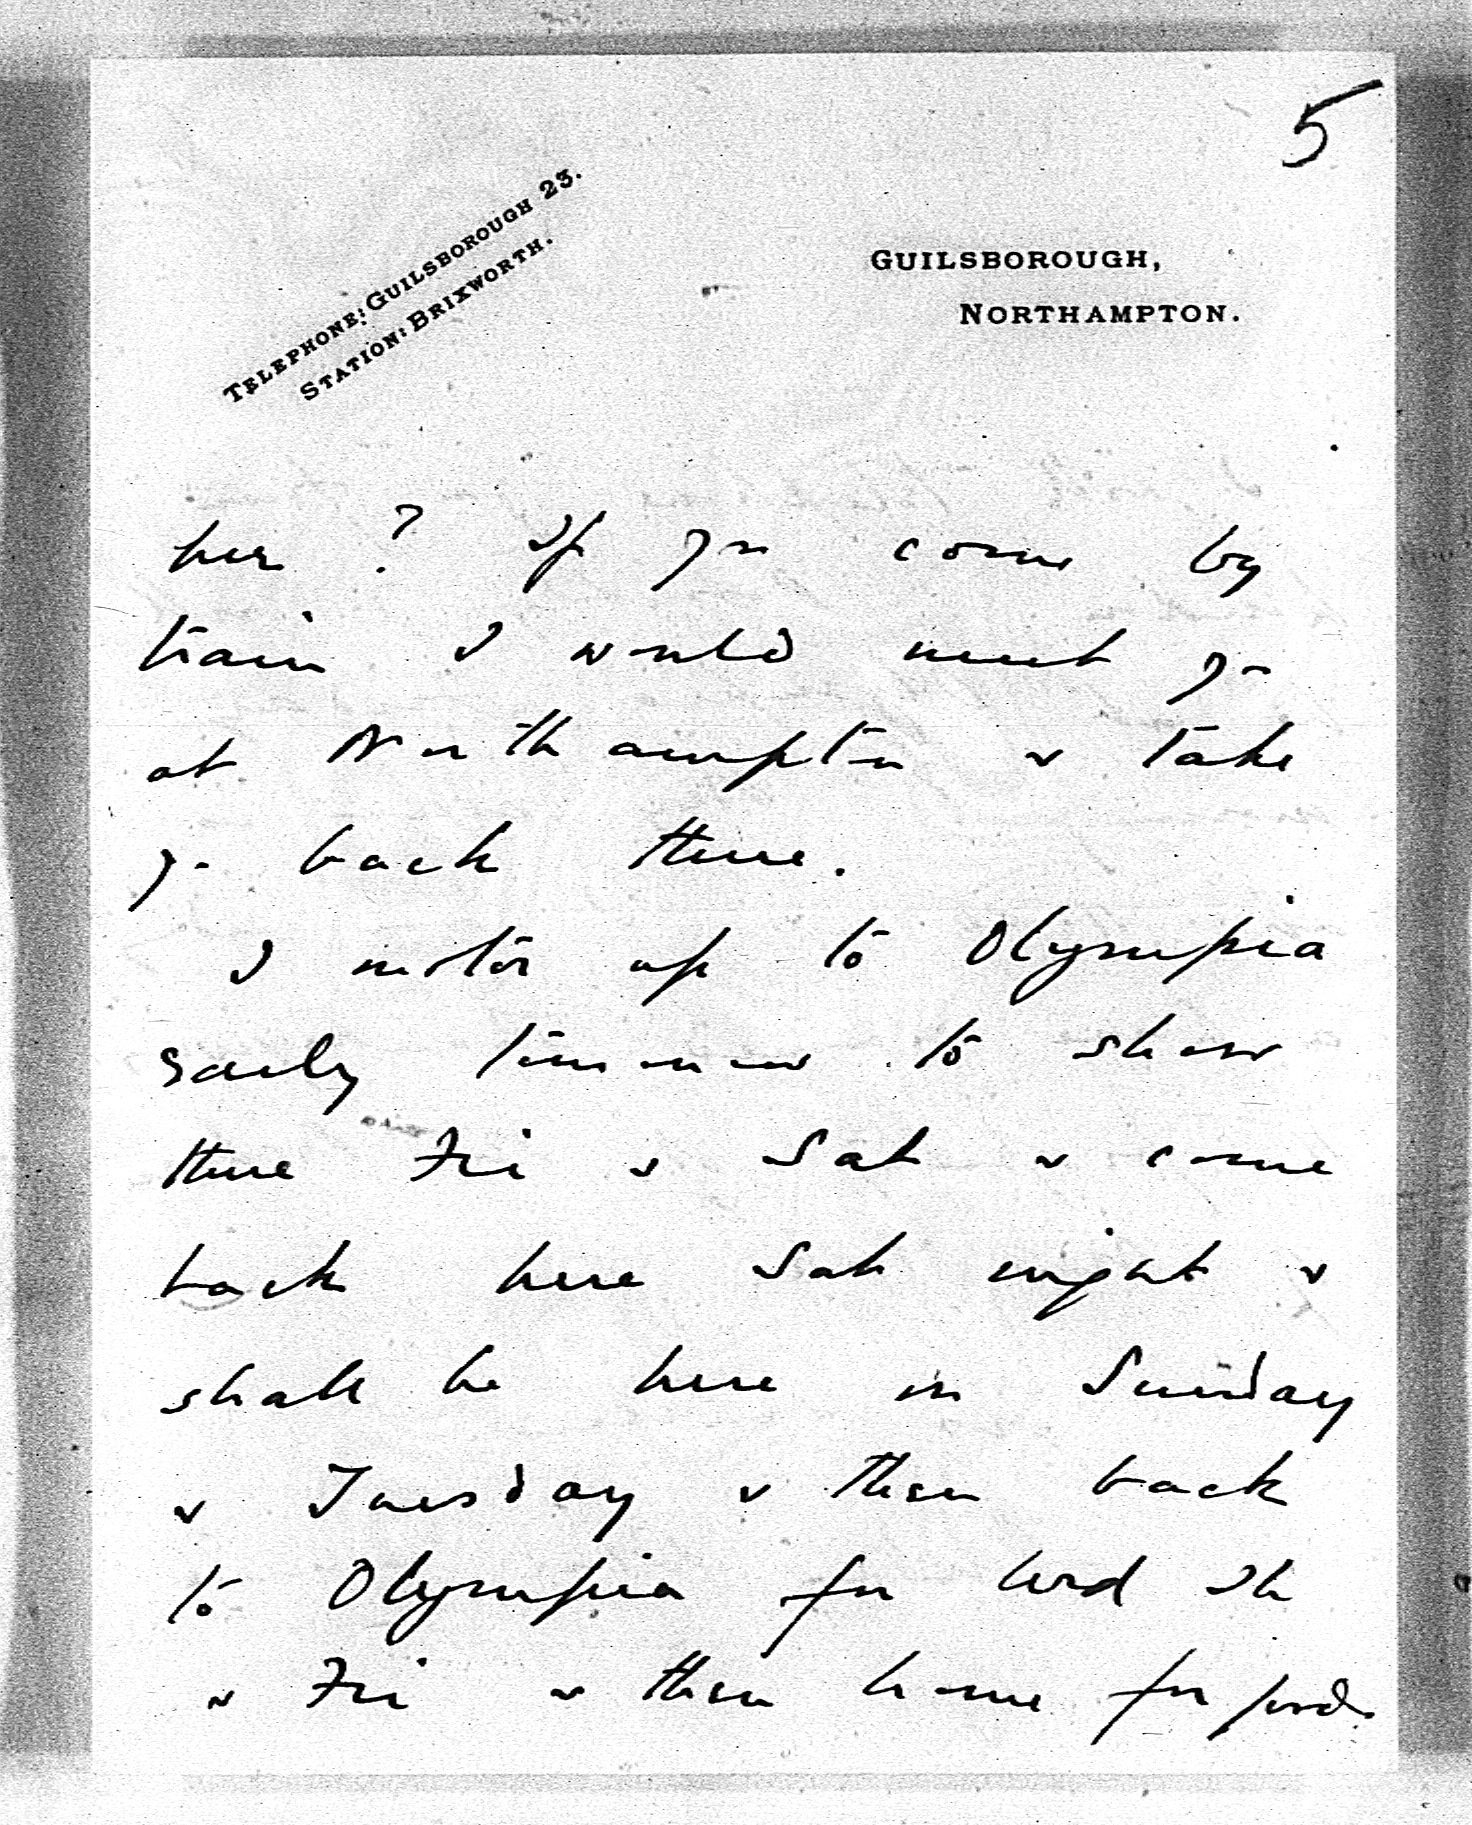 5
TELEPHONE: GUILSBOROUGH 23.
STATION: BRIXWORTH.
GUILSBOROUGH,
NORTHAMPTON.
her ? If you come by
train I would meet you
at Northampton & take
you back there.
I motor up to Olympia
early tomorrow to show
there Fri & Sat & come
back here Sat night &
shall be here on Sunday
& Tuesday & then back
to Olympia for Wed Th
& Fri & then home for good.